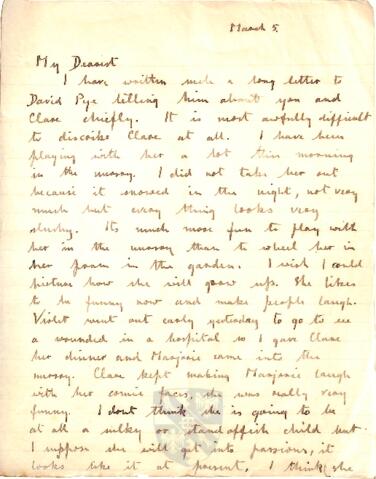 March 5.
My Dearest
I have written such a long letter to
David Pye telling him about you and
Clare chiefly. It is most awfully difficult
to discribe Clare at all. I have been
playing with her a lot this morning
in the nursery. I did not take her out
because it snowed in the night, not very
much but every thing looks very
slushy. Its much more fun to play with
her in the nursery than to wheel her in
her pram in the garden. I wish I could
picture how she will grow up. She likes
to be funny now and make people laugh.
Violet went out early yesterday to go to see
a wounded in a hospital so I gave Clare
her dinner and Marjorie came into the
nursery. Clare kept making Marjorie laugh
with her comic faces, she was really very
funny. I dont think she is going to be
at all a sulky or standoffish child but
I suppose she will get into passions, it
looks like it at present, I think she